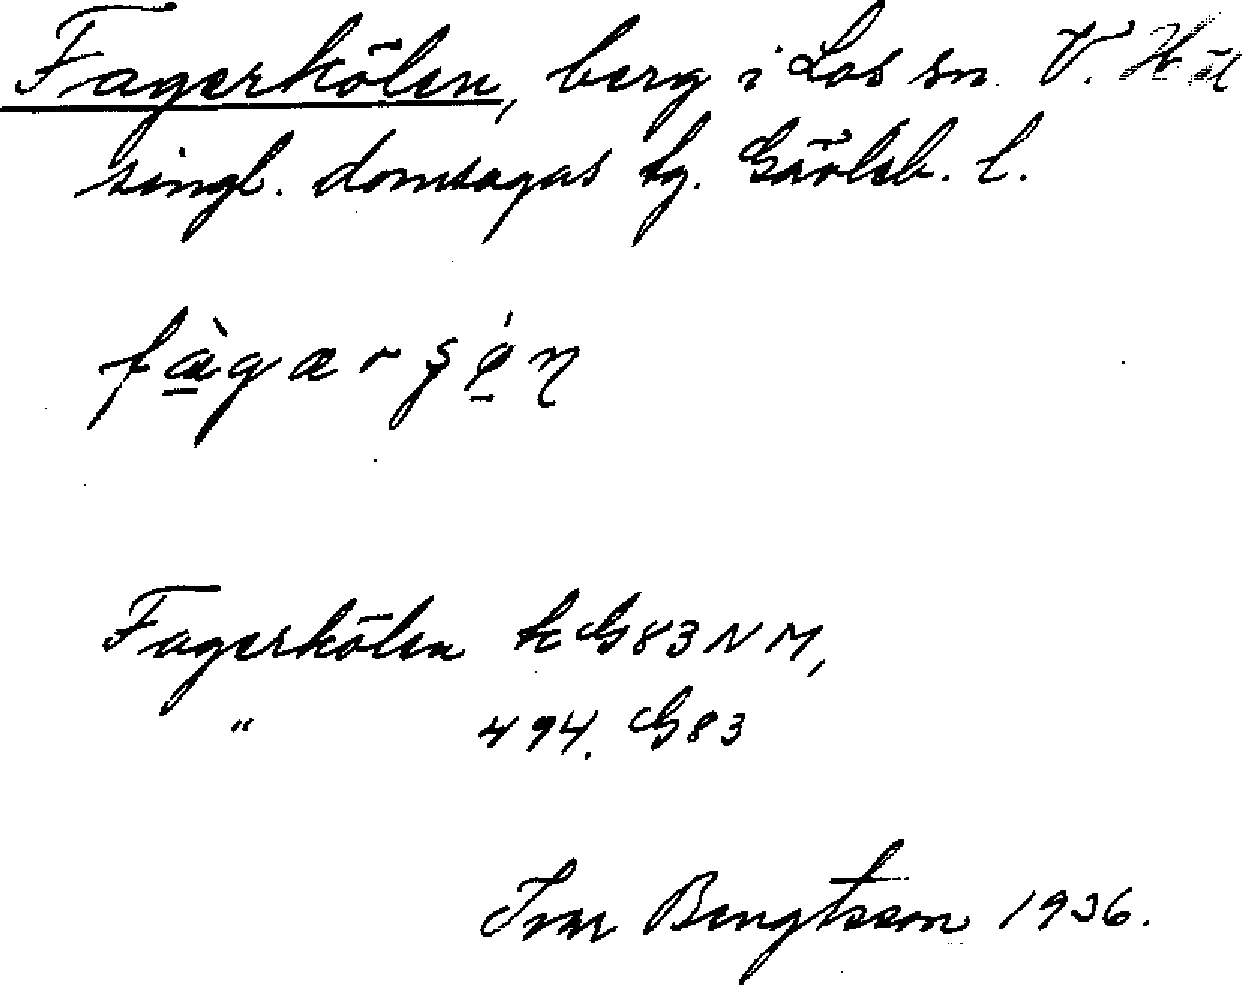 Fagerkölen, berg i Los sn. V. Häl
singl. domsagas tg. Gävleb. l.
Fagerkölen k G83NM,
" 494. G83
Ivar Bengtsson 1936.